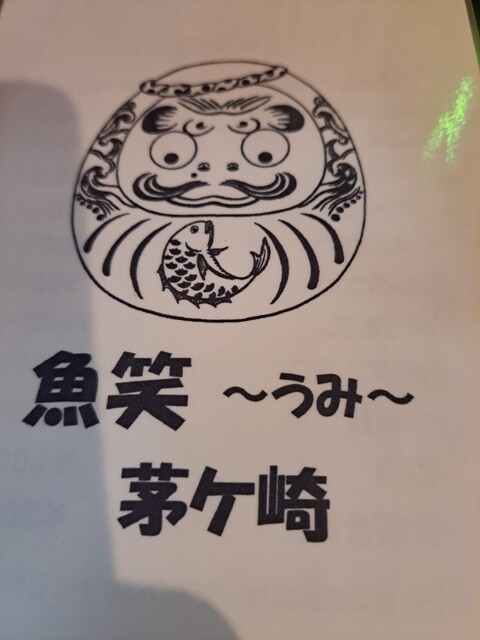 魚笑 ～うみ～
茅ケ崎